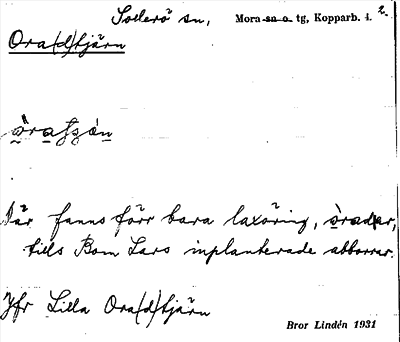 Sollerö sn, Mora sn o. tg, Kopparb. l. 2.
Ora(d)tjärn
Där fanns förr bara laxöring, òradar,
tills Bom Lars inplanterade abborrar.
Jfr Lilla Ora(d)tjärn
Bror Lindén 1931